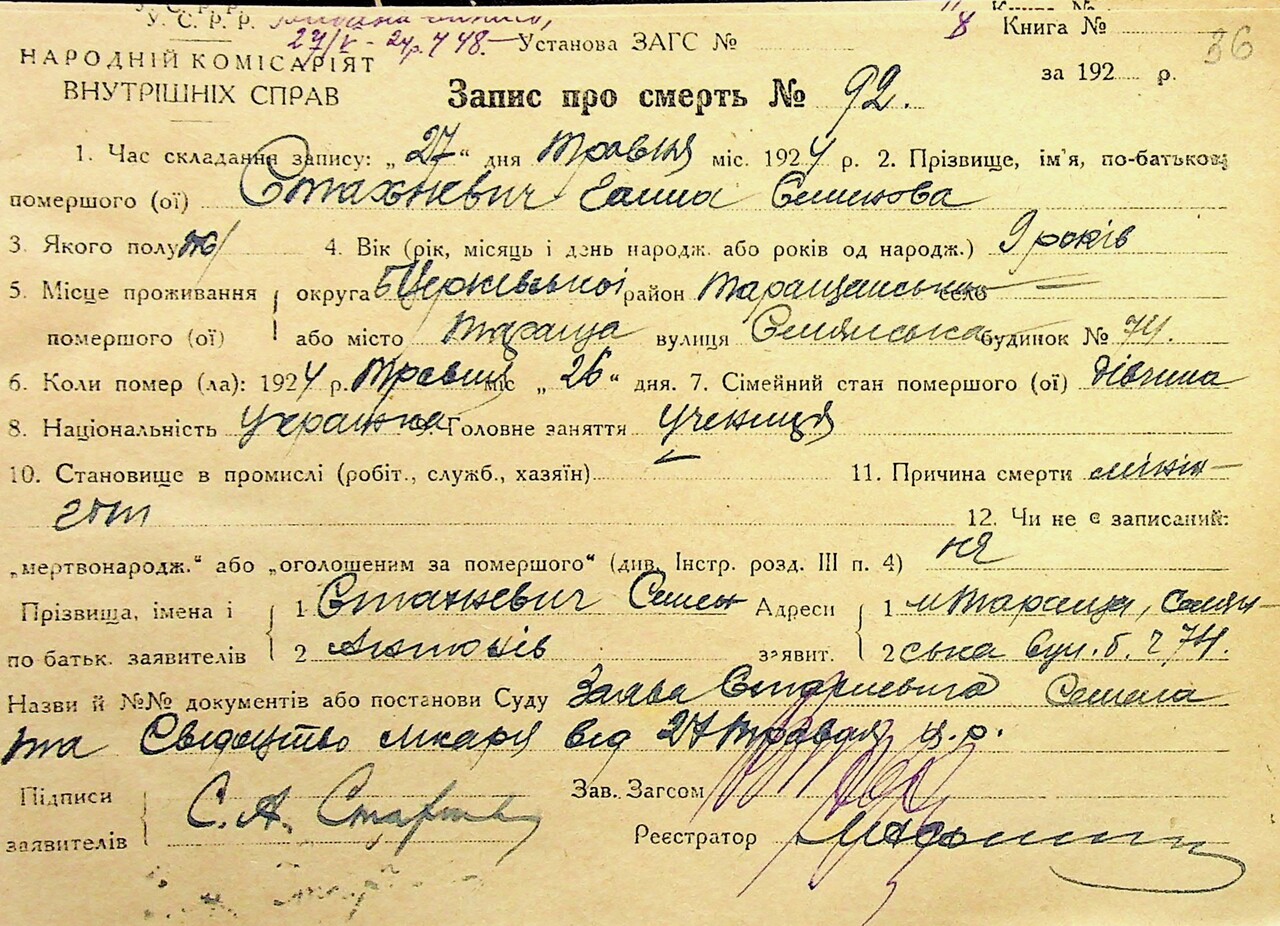 У. С. Р. Р.
27/V - 24р. Ч 48.
Установа ЗАГС №
8
Книга №
36
НАРОДНІЙ КОМІСАРІЯТ
ВНУТРІШНІХ СПРАВ
за 192 р.
Запис про смерть № 92.
1. Час складання запису: „27“ дня Травня міс. 1924 р. 2. Прізвище, ім'я, по-батькові
помершого (ої) Стахневич Галина Семенова
3. Якого полу ж/ 4. Вік (рік, місяць і день народж. або років од народж.) 9 років
5. Місце проживання округа БЦерківської район Таращанський село —
помершого (ої) або місто Тараща вулиця будинок № 74.
6. Коли помер (ла): 1924 р. Травня міс „26“ дня. 7. Сімейний стан помершого (ої) дівчина
8. Національність Українка Головне заняття Учениця
10. Становище в промислі (робіт., служб., хазяїн) — 11. Причина смерти мінін-
гит
12. Чи не є записаний:
„мертвонародж.“ або „оголошеним за помершого“ (див. Інстр. розд. III п. 4) ня
Прізвища, імена і 1 Стахневич Семен Адреси 1 м Тараща,
по батьк. заявителів 2 Антонів заявит. 2 ська вул. б. ч 74.
Назви й №№ документів або постанови Суду Заява Стахневича Семена
та Свідоцтво лікаря від 27 Травня ц.р.
Підписи Зав. Загсом
заявителів С. А.
Реєстратор